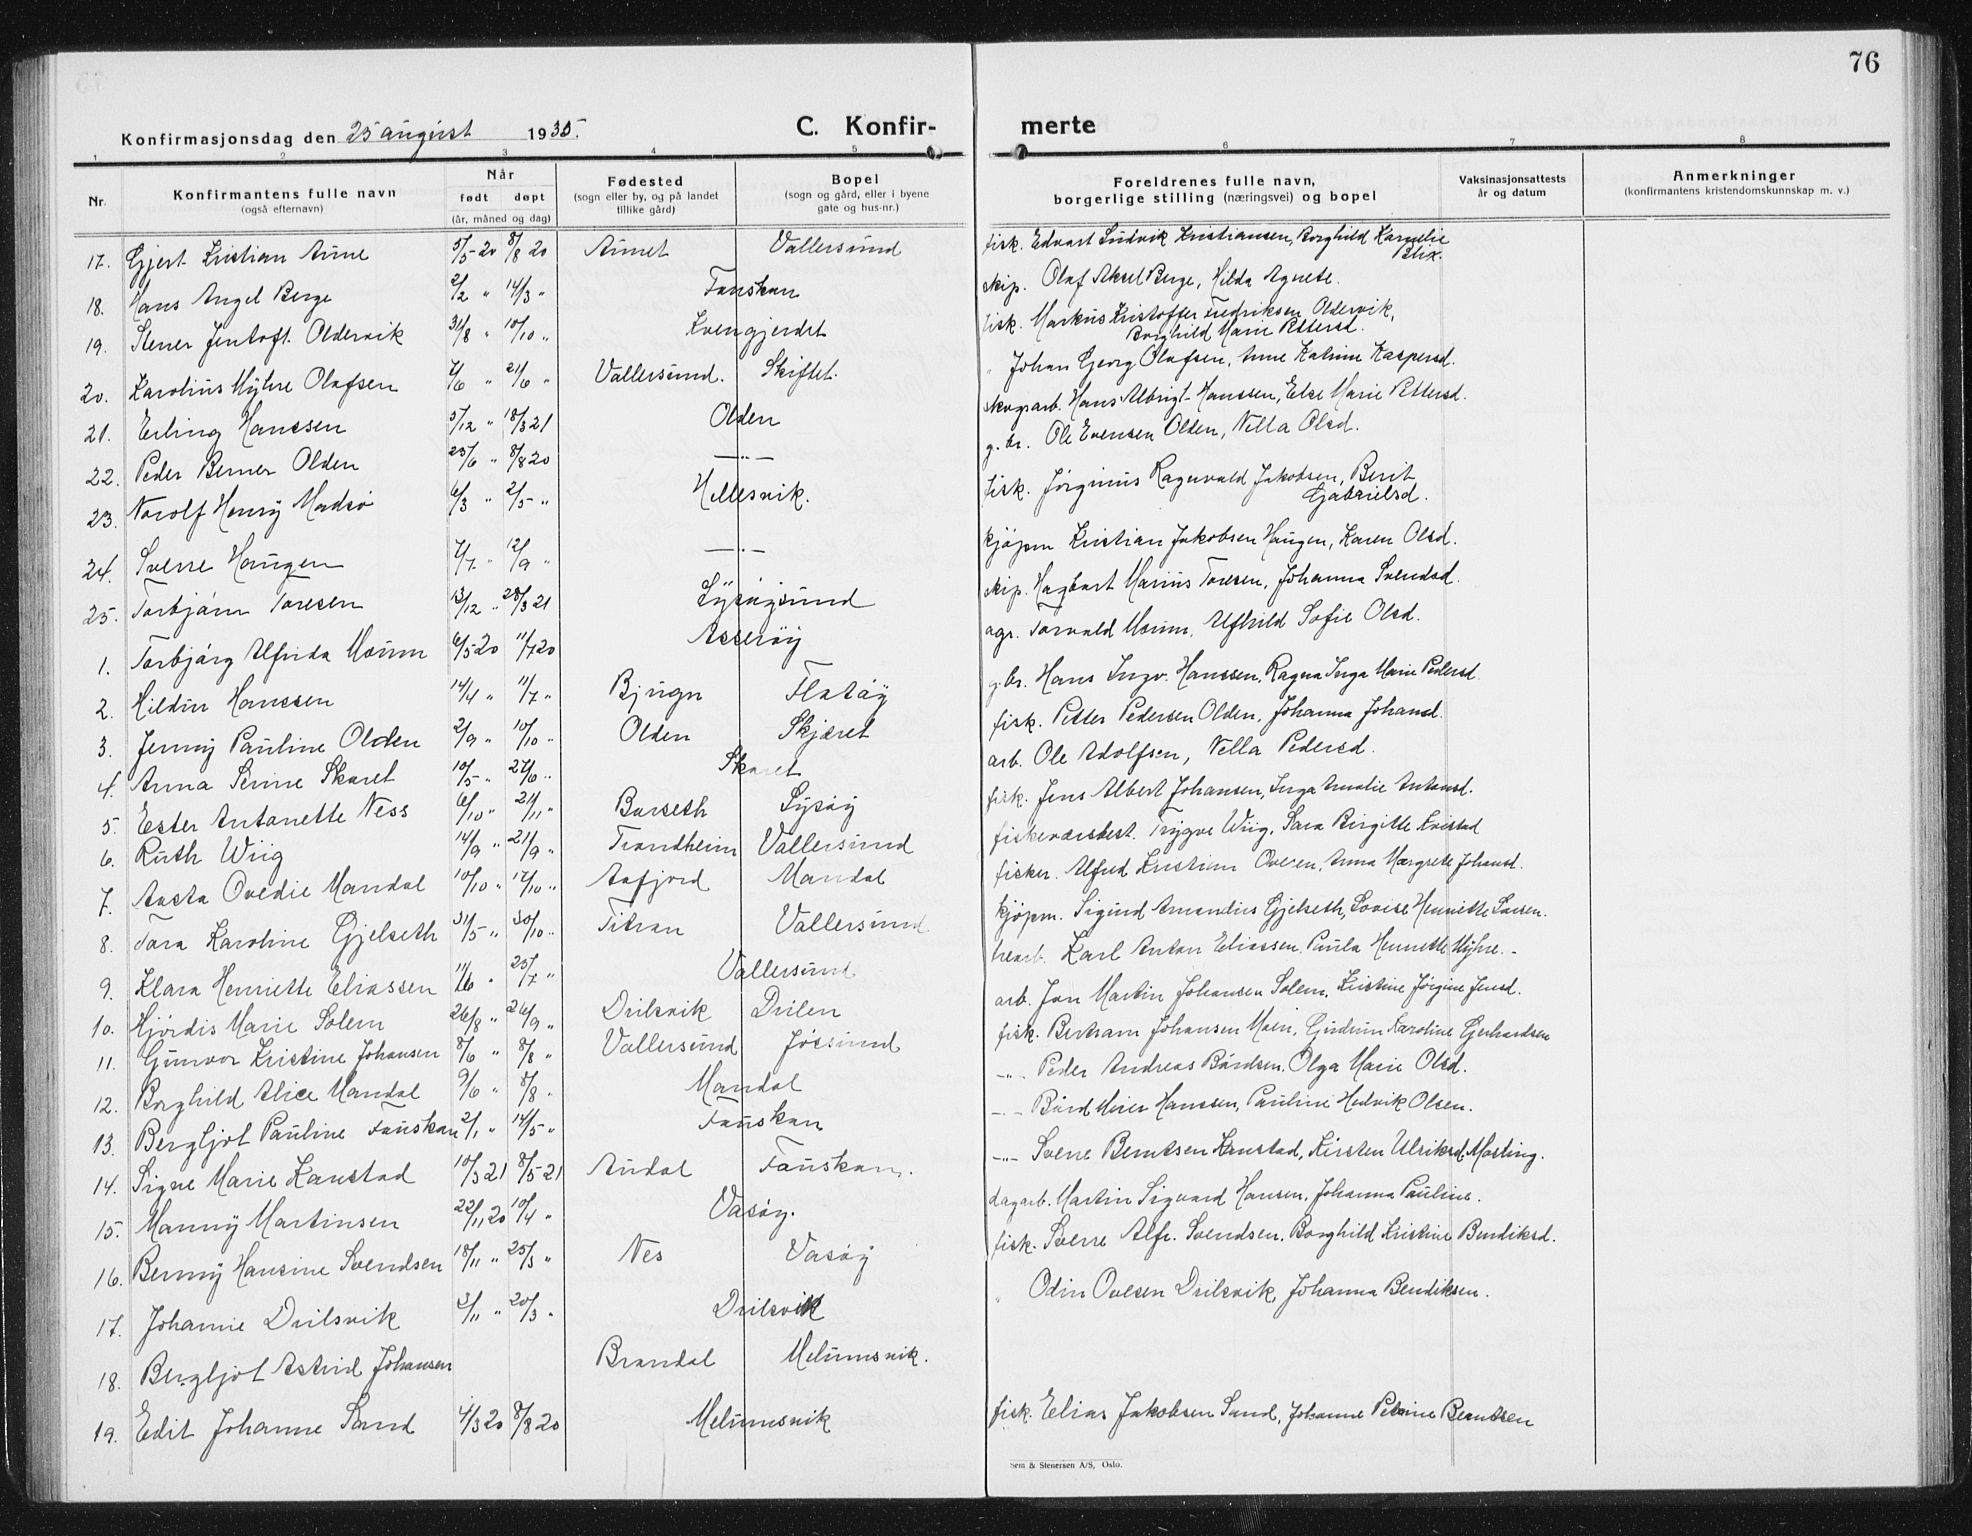 76
Konfirmasjonsdag den 25 august 1935. C. Konfir- merte
1 2 3 4 5 6 7 8
Nr. Konfirmantens fulle navn (også efternavn) Når født døpt (år, måned og dag) Fødested (sogn eller by, og på landet tillike gård) Bopel (sogn og gård, eller i byene gate og hus-nr.) Foreldrenes fulle navn, borgerlige stilling (næringsvei) og bopel Vaksinasjonsattests år og datum Anmerkninger (konfirmantens kristendomskunnskap m. v.)
17. Gjert Kristian Aune 5/5-20 8/8 20 Aunet Vallersund fisk. Edvart Ludvik Kristiansen, Borghild Kornelie Blix.
18. Hans Angel Berge 2/2 " 14/3 " Fauskan skip. Olaf Aksel Berge, Hilda Agnete.
19. Stener Jentoft Oldervik 31/8 " 10/10 " Kvengjerdet fisk. Markus Kristoffer Fredriksen Oldervik, Borghild Marie Pettersd.
20. Karolius Myhre Olafsen " 21/6 " Vallersund. Skiftet. " Johan Georg Olafsen, Anne Katrine Kaspersd.
21. Erling Hanssen 5/12 " 18/3 21 Olden skogsarb. Hans Albrigt Hanssen, Else Marie Pettersd.
22. Peder Berner Olden 25/6 " 8/8 20 —"— g.br. Ole Evensen Olden, Nella Olsd.
23. Norolf Henry Madsø 6/3 " 2/5 " Hellesvik. fisk. Jørginus Ragnvald Jakobsen, Berit Gabrielsd.
24. Sverre Haugen 7/7 " 12/9 " —"— kjøpm Kristian Jakobsen Haugen, Karen Olsd.
25. Torbjørn Toresen 13/12 " 28/3 21 Lysøysund skip. Hagbart Marius Toresen, Johanna Svendsd.
1. Torbjørg Alfrida Moum 6/5 20 11/7 20 Asserøy agr. Torvald Moum, Alfhild Sofie Olsd.
2. Hildur Hanssen 14/4 " 11/7 " Bjugn Flatøy g.br. Hans Ingv. Hanssen, Ragna Inga Marie Pedersd.
3. Jenny Pauline Olden 2/9 " 10/10 " Olden Skjæret fisk. Petter Pedersen Olden, Johanna Johansd.
4. Anna Serine Skaret 10/5 " 27/6 " Skaret arb. Ole Adolfsen, Nella Pedersd.
5. Ester Antonette Ness 6/10 " 21/11 " Barseth Lysøy fisk. Jens Albert Johansen, Inga Amalie Antonsd.
6. Ruth Wiig 14/9 " 21/9 " Trondheim Vallersund fiskeværsbest. Trygve Wiig, Sara Birgitte Kvistad
7. Aasta Ovedie Mandal 10/10 " 17/10 " Aafjord Mandal fisker. Alfred Kristian Ovesen, Anna Margrete Johansd.
8. Tora Karoline Gjelseth 31/5 " 30/10 " Titran Vallersund kjøpm. Sigurd Amandius Gjelseth, Lovise Henriette
9. Klara Henriette Eliassen 11/6 " 25/7 " Vallersund Karl Anton Eliassen, Paula Henriette Myhre.
10. Hjørdis Marie Solem 26/8 " 26/9 " Drilsvik Drilen arb. Jon Martin Johansen Solem, Kristine Jørgine Jensd.
11. Gunvor Kristine Johansen 8/6 " 8/8 " Vallersund Jøssund fisk. Bertram Johansen Moen, Gudrun Karoline Gerhardsen
12. Borghild Alice Mandal 9/6 " 8/8 " Mandal —"— Peder Andreas Bårdsen, Olga Marie Olsd.
13. Bergljot Pauline Fauskan 2/1 " 14/5 " Fauskan —"— Bård Meier Hanssen, Pauline Hedvik Olsen.
14. Signe Marie Kanstad 10/3 21 8/5 21 Audal Fauskan. —"— Sverre Berntsen Kanstad, Kirsten Ulriksd Mosling.
15. Manny Martinsen 22/11 20 10/4 " Vasøy. dagarb. Martin Sigvard Hansen, Johanna Pauline.
16. Benny Hansine Svendsen 18/11 " 25/3 " Nes Vasøy fisk. Sverre Alfr. Svendsen, Borghild Kristine Bendiksd.
17. Johanne Drilsvik 3/11 " 20/3 " Drilsvik " Odin Ovesen Drilsvik, Johanna Bendiksen.
18. Bergljot Astrid Johansen Brandal Melumsvik.
19. Edit Johanne Sand 4/3 20 8/8 20 Melumsvik fisk. Elias Jakobsen Sand, Johanne Petrine Berntsen
Sem & Stenersen A/S, Oslo.